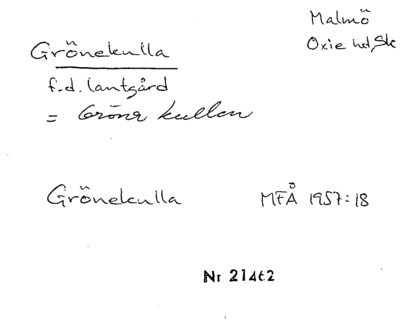 Malmö
Oxie hd, Sk
Grönekulla
f.d. lantgård
= Gröna kullen
Grönekulla MFÅ 1957:18
Nr 21462